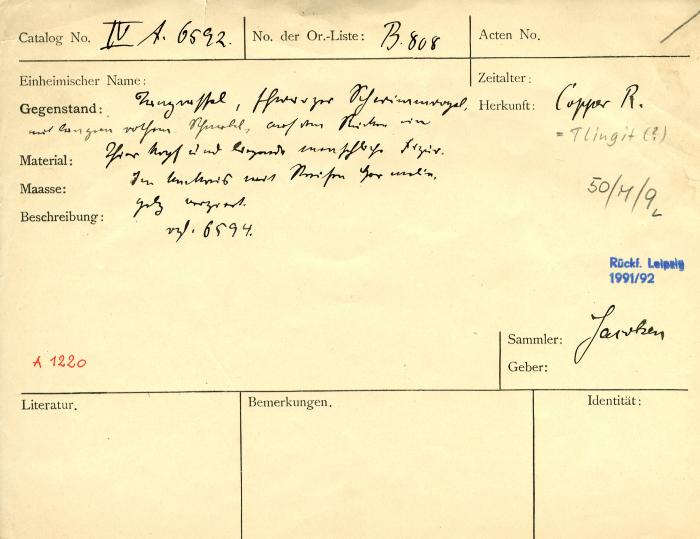 Catalog No. IV A. 6592. No. der Or.-Liste: B. 808 Acten No.
Einheimischer Name: Zeitalter:
Gegenstand: Tanzrassel, schwarzer Schwimmvogel, Herkunft: Copper R.
mit langem rothem Schnabel, auf dem Rücken ein = Tlingit (?)
Material: Thierkopf und liegende menschliche Figur.
Maasse: Im Umkreis mit Streifen Hermelin- 50/M/9
Beschreibung: pelz verziert.
vgl. 6594.
Rückf. Leipzig
1991/92
Sammler: Jacobsen
Geber:
A 1220
Literatur. Bemerkungen. Identität: